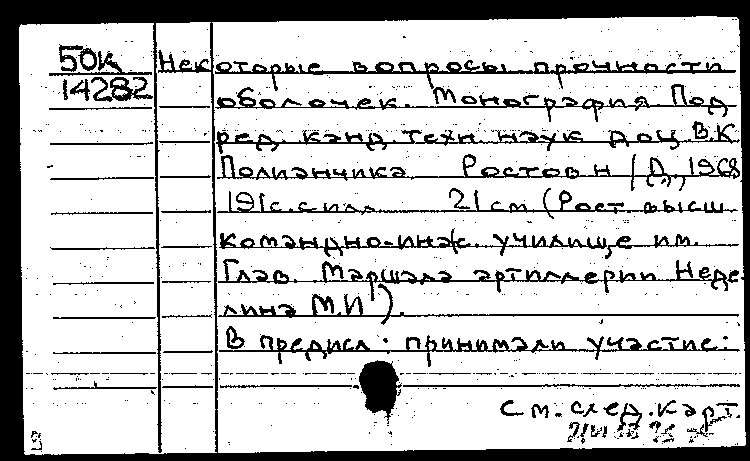 50к Некоторые вопросы прочности
14282 оболочек. Монография Под
ред. канд. техн. наук доц В.К.
Полианчика Ростов н/Д., 1968
191с. с илл 21 см (Рост. высш
командно-инж. училище им.
Глав. Маршала артиллерии Неде-
лина М.И).
В предисл: принимали участие:
См. след. карт.